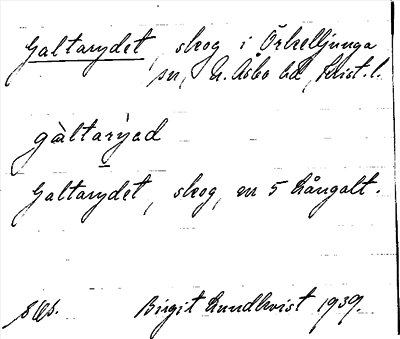 Galtarydet, skog i Örkelljunga
sn, N. Åsbo hd, Krist. l.
gàltarýad
Galtarydet, skog, en 5 hångalt.
Birgit Lundkvist 1939.